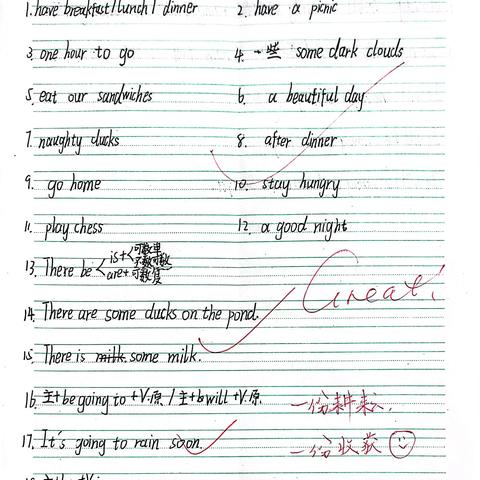 1. have breakfast/lunch/dinner 2. have a picnic
3. one hour to go 4. 一些 some dark clouds
5. eat our sandwiches 6. a beautiful day
7. naughty ducks 8. after dinner
9. go home 10. stay hungry
11. play chess 12. a good night
13. There be < is+ < 可数单 不可数
are+ 可数复
Great!
14. There are some ducks on the pond.
15. There is some milk.
16. 主+be going to +V.原 / 主+will +V.原
一份耕耘,
17. It's going to rain soon.
一份收获